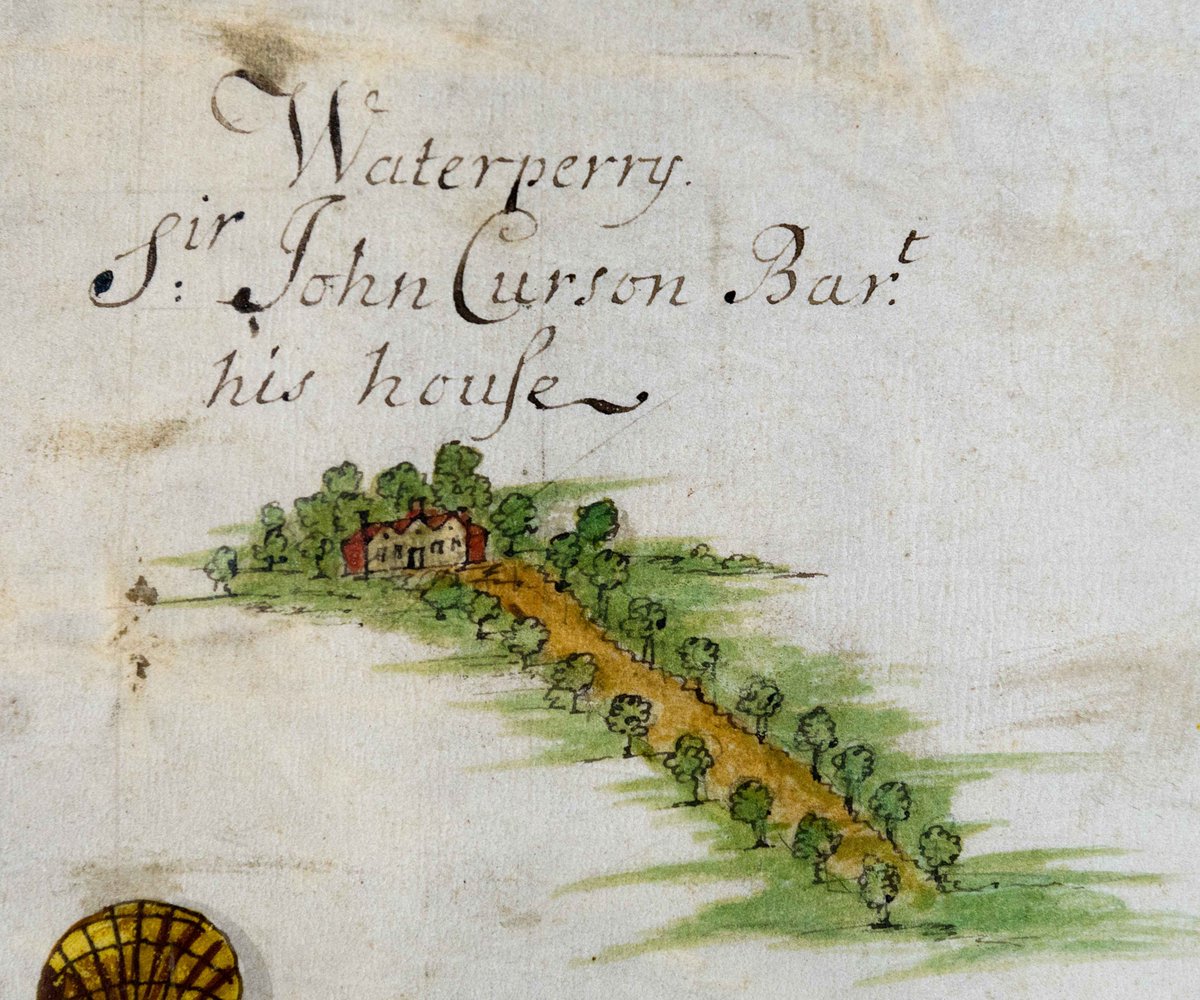 Waterperry.
S:ir John Curson Bar.t
his houſe